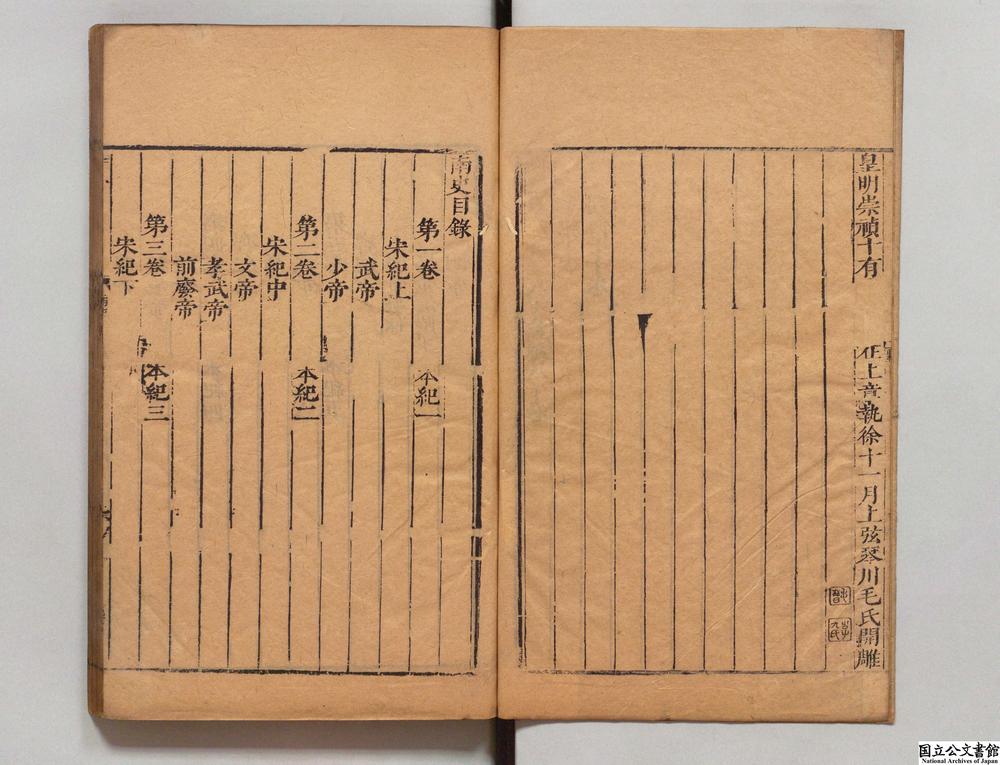 皇明崇禎十有
在上章執徐十一月上弦琴川毛氏開雕
南史目錄
第一卷 本紀一
宋紀上
武帝
少帝
第二卷 本紀二
宋紀中
文帝
孝武帝
前廢帝
第三卷 本紀三
宋紀下
国立公文書館
National Archives of Japan